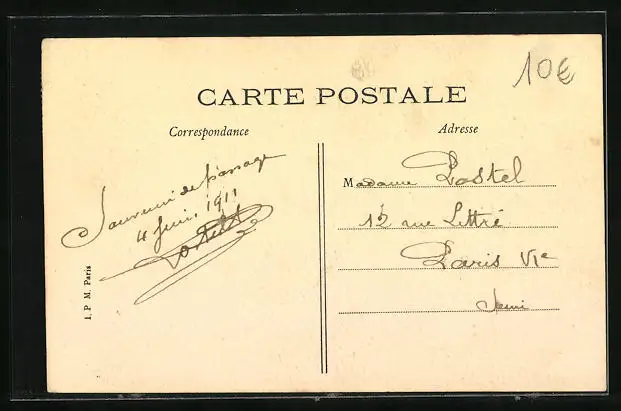 10€
CARTE POSTALE
Correspondance
Adresse
Souvenir de passage
4 Juin 1911
Madame Postel
12 rue Littré
Paris VIe
I. P. M. Paris